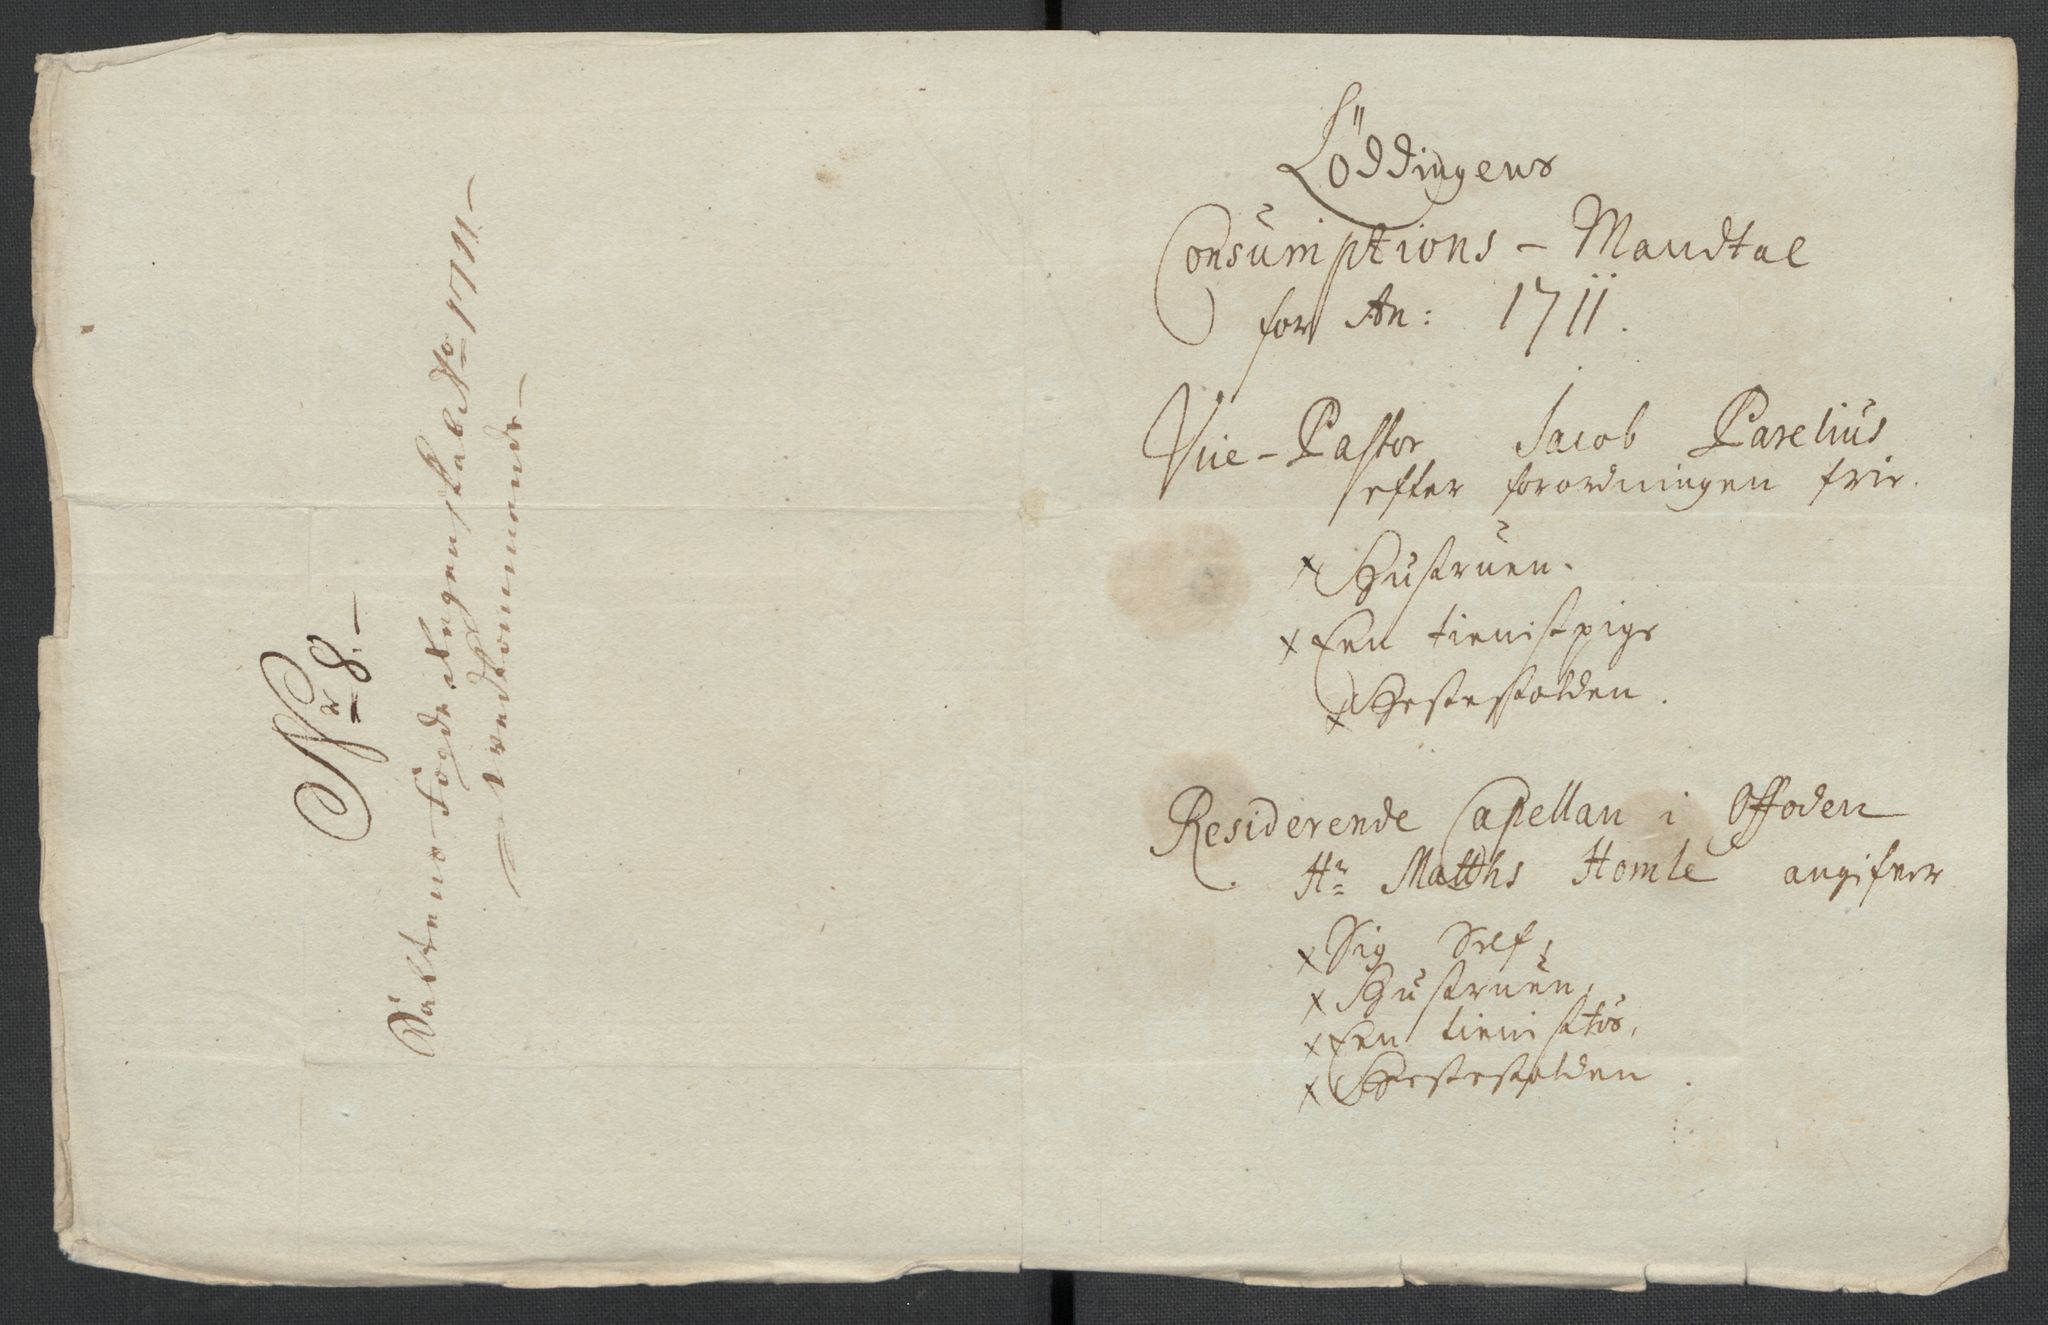 Nr 8.-
Saltens Fogderie Regenskab Ao 1711-
vedkommende-
Löddingens
Consumptions - Mandtal
for An: 1711.
Vice-Pastor Jacob Parelius
efter forordningen frie.
x Hustruen.
x Een tienistpige
x Hestesholden.
Residerende Capellan i Offoden
Hr Matths Homle angifver
x Sig Self,
x Hustruen,
x Een tienisttøs,
x Hesteholden.